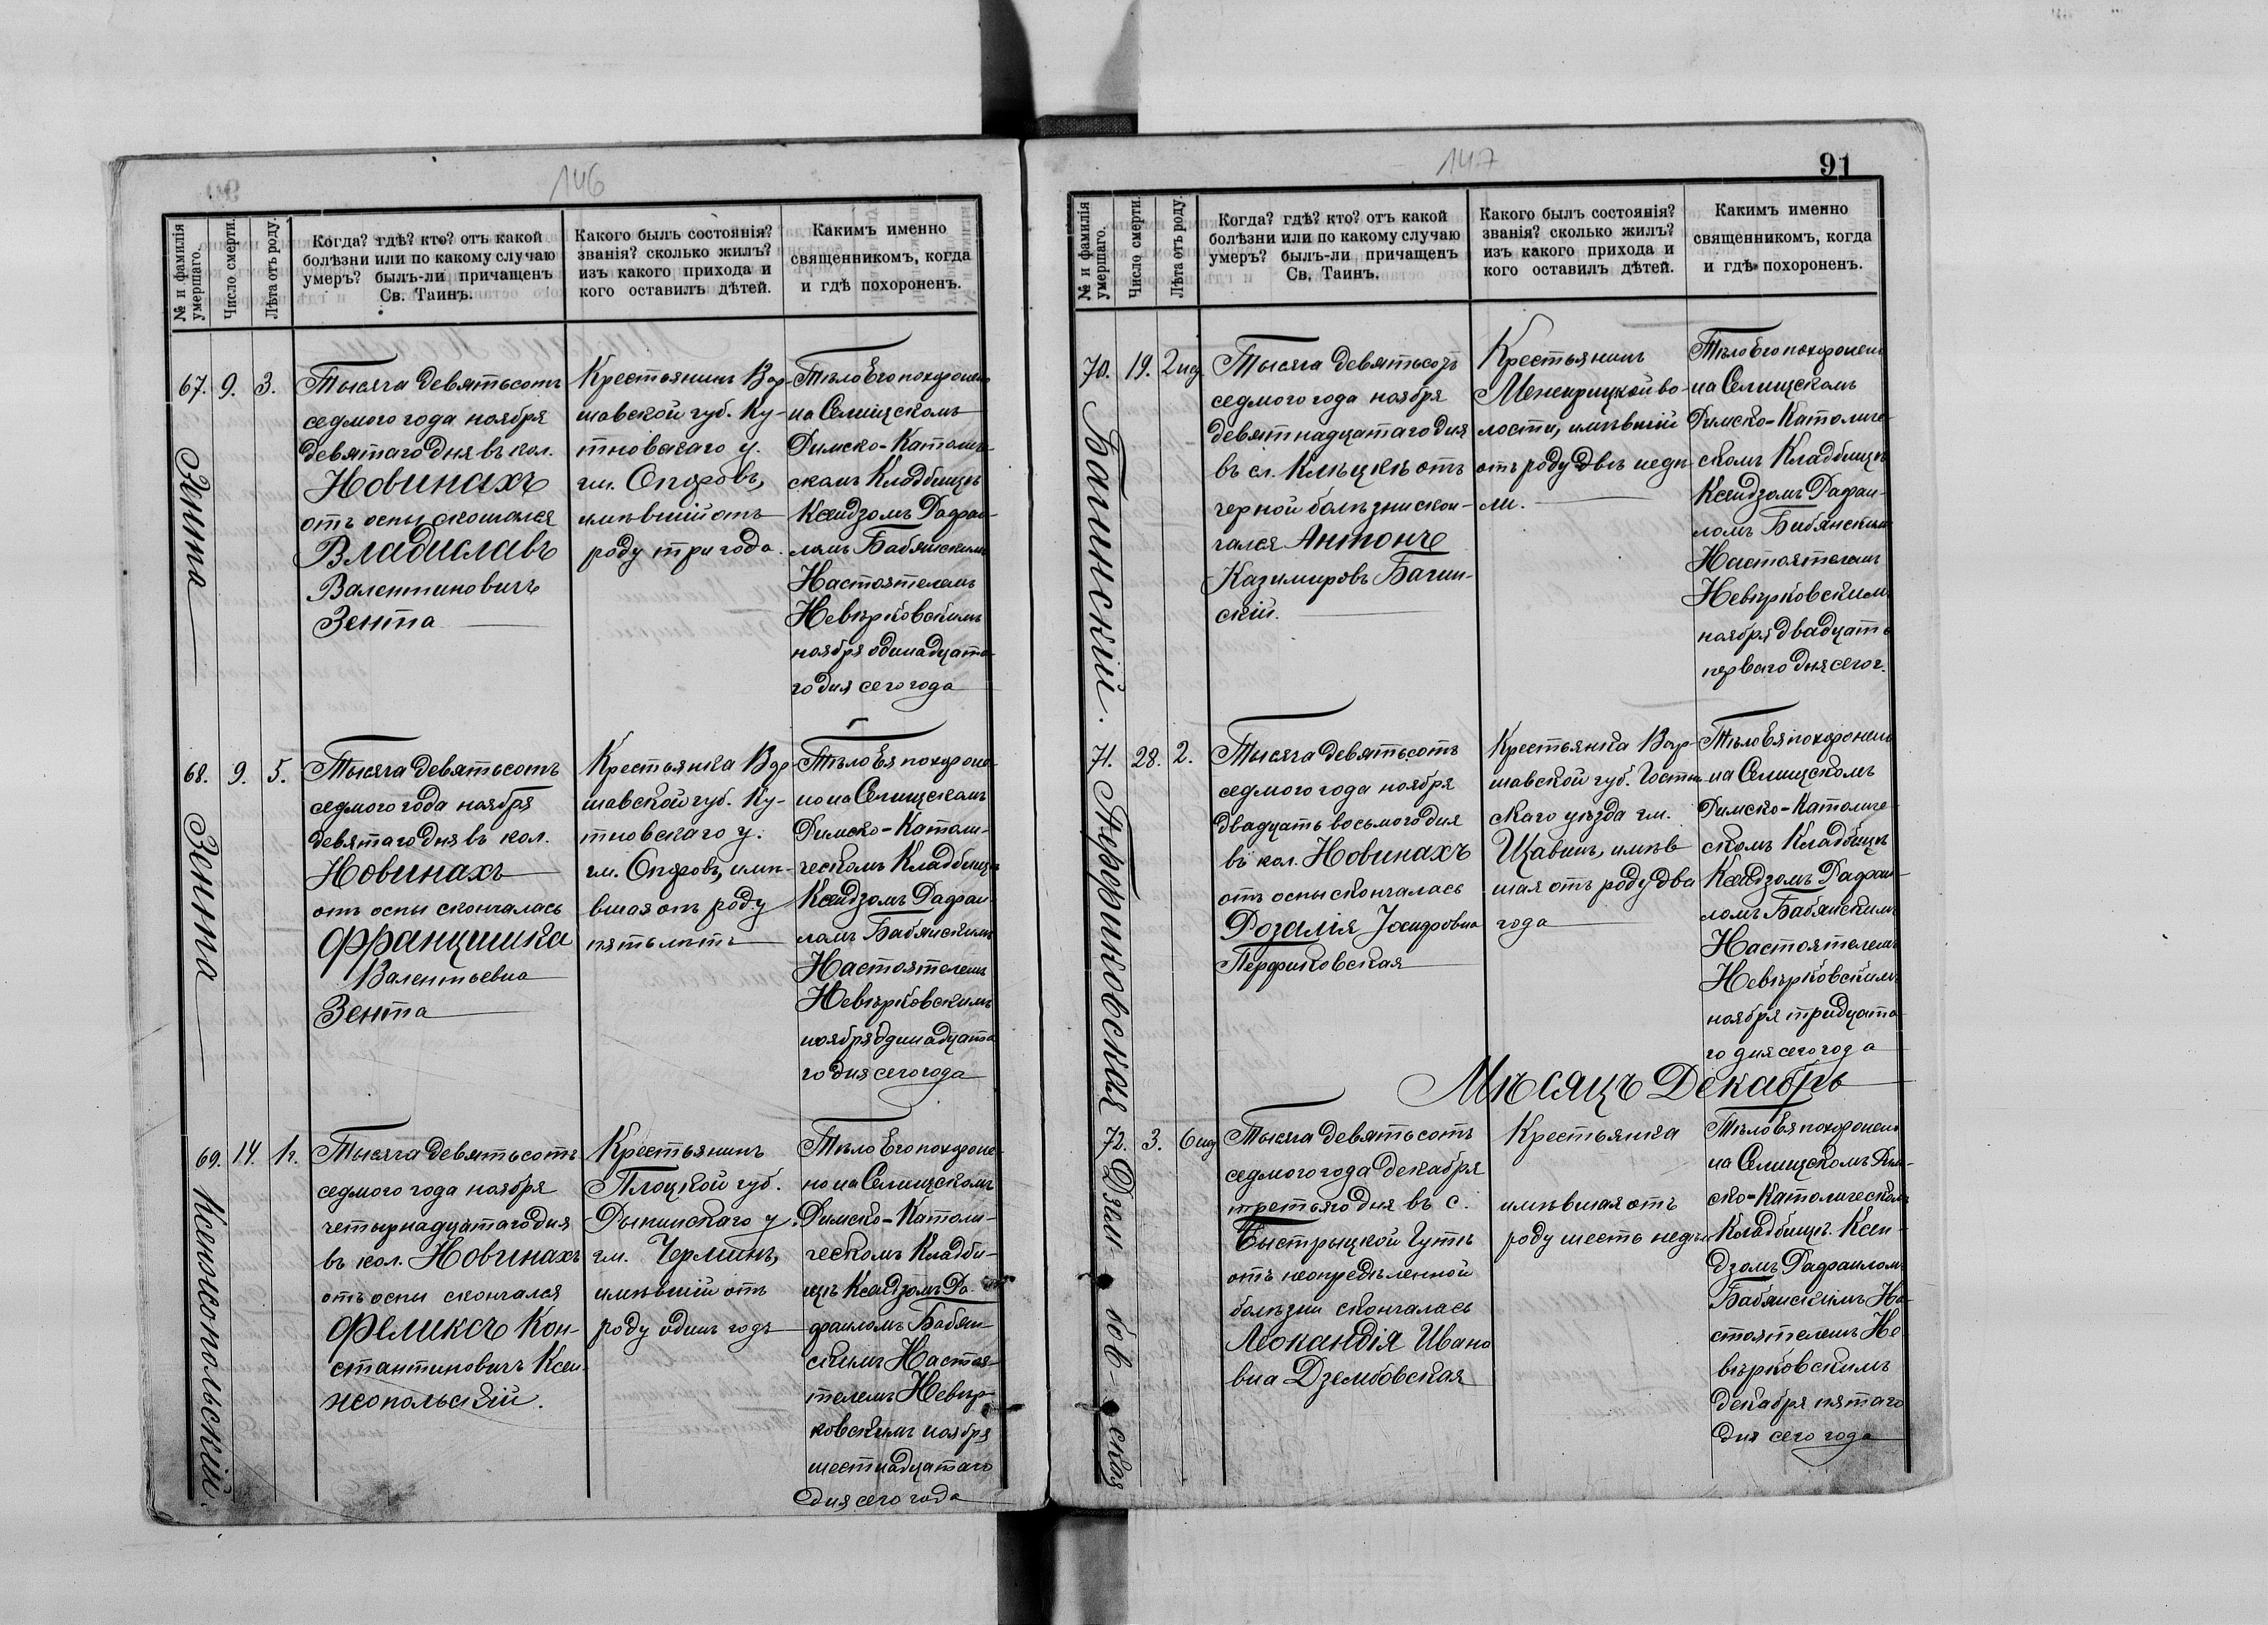 146
№ и фамилія умершаго.
Число смерти.
Лѣта отъ роду.
Когда? гдѣ? кто? отъ какой
болѣзни или по какому случаю
умеръ? былъ-ли причащенъ
Св. Таинъ.
Какого былъ состоянія?
званія? сколько жилъ?
изъ какого прихода и
кого оставилъ дѣтей.
Какимъ именно
священникомъ, когда
и гдѣ похороненъ.
67. 9. 3.
Зента
Тысяча девятьсотъ
седмого года ноября
девятаго дня въ кол.
Новинахъ
отъ оспы скончался
Владиславъ
Валентиновичъ
Зента
Крестьянинъ Вар-
шавской губ. Ку-
тновскаго у.
гм. Опоровъ,
имѣвшій отъ
роду три года.
Тѣло Его похоронено
на Селищскомъ
Римско-Католиче-
скомъ Кладбищѣ
Ксендзомъ Рафаи-
ломъ Бабянскимъ
Настоятелемъ
Невѣрковскимъ
ноября одинадцата-
го дня сего года
68. 9. 5.
Зента
Тысяча девятьсотъ
седмого года ноября
девятаго дня въ кол.
Новинахъ
отъ оспы скончалась
Францишка
Валентьевна
Зента
Крестьянка Вар-
шавской губ. Ку-
тновскаго у.
гм. Опоровъ, имѣ-
вшая отъ роду
пять лѣтъ
Тѣло Ея похороне-
но на Селищскомъ
Римско-Католи-
ческомъ Кладбищѣ
Ксендзомъ Рафаи-
ломъ Бабянскимъ
Настоятелемъ
Невѣрковскимъ
ноября одинадцата-
го дня сего года
69. 14. 1г.
Ксенжопольскій.
Тысяча девятьсотъ
седмого года ноября
четырнадцатаго дня
въ кол. Новинахъ
отъ оспы скончался
Феликсъ Кон-
стантиновичъ Ксен-
жопольскій.
Крестьянинъ
Плоцкой губ.
Рыпинскаго у.
гм. Черминъ,
имѣвшій отъ
роду одинъ годъ
Тѣло Его похороне-
но на Селищскомъ
Римско-Католи-
ческомъ Кладби-
щѣ Ксендзомъ Ра-
фаиломъ Бабян-
скимъ Настоя-
телемъ Невѣр-
ковскимъ ноября
шестнадцатаго
дня сего года
147
91
№ и фамилія умершаго.
Число смерти.
Лѣта отъ роду.
Когда? гдѣ? кто? отъ какой
болѣзни или по какому случаю
умеръ? былъ-ли причащенъ
Св. Таинъ.
Какого былъ состоянія?
званія? сколько жилъ?
изъ какого прихода и
кого оставилъ дѣтей.
Какимъ именно
священникомъ, когда
и гдѣ похороненъ.
70. 19. 2 нед
Багинскій.
Тысяча девятьсотъ
седмого года ноября
девятнадцатаго дня
въ сл. Клецкѣ отъ
черной болѣзни скон-
чался Антонъ
Казимировъ Багин-
скій.
Крестьянинъ
Межирицкой во-
лости, имѣвшій
отъ роду двѣ недѣ-
ли.
Тѣло Его похоронено
на Селищскомъ
Римско-Католиче-
скомъ Кладбищѣ
Ксендзомъ Рафаи-
ломъ Бабянскимъ
Настоятелемъ
Невѣрковскимъ
ноября двадцать
перваго дня сего г.
71. 28. 2.
Перфиковская
Тысяча девятьсотъ
седмого года ноября
двадцать восьмого дня
въ кол. Новинахъ
отъ оспы скончалась
Розалія Іосифовна
Перфиковская
Крестьянка Вар-
шавской губ. Гостын-
скаго уѣзда гм.
Щавинъ, имѣв
шая отъ роду два
года
Тѣло Ея похоронено
на Селищскомъ
Римско-Католиче-
скомъ Кладбищѣ
Ксендзомъ Рафаи-
ломъ Бабянскимъ
Настоятелемъ
Невѣрковскимъ
ноября тридцата-
го дня сего года
Мѣсяцъ Декабрь
72. 3. 6 нед
Дзембовская
Тысяча девятьсотъ
седмого года декабря
третьяго дня въ с.
Быстрыцкой Гутѣ
отъ неопредѣленной
болѣзни скончалась
Леокандія Ивано
вна Дзембовская
Крестьянка
имѣвшая отъ
роду шесть недѣль
Тѣло Ея похоронено
на Селищскомъ Рим-
ско-Католическомъ
Кладбищѣ. Ксен-
дзомъ Рафаиломъ
Бабянскимъ На-
стоятелемъ Не
вѣрковскимъ
декабря пятаго
дня сего года